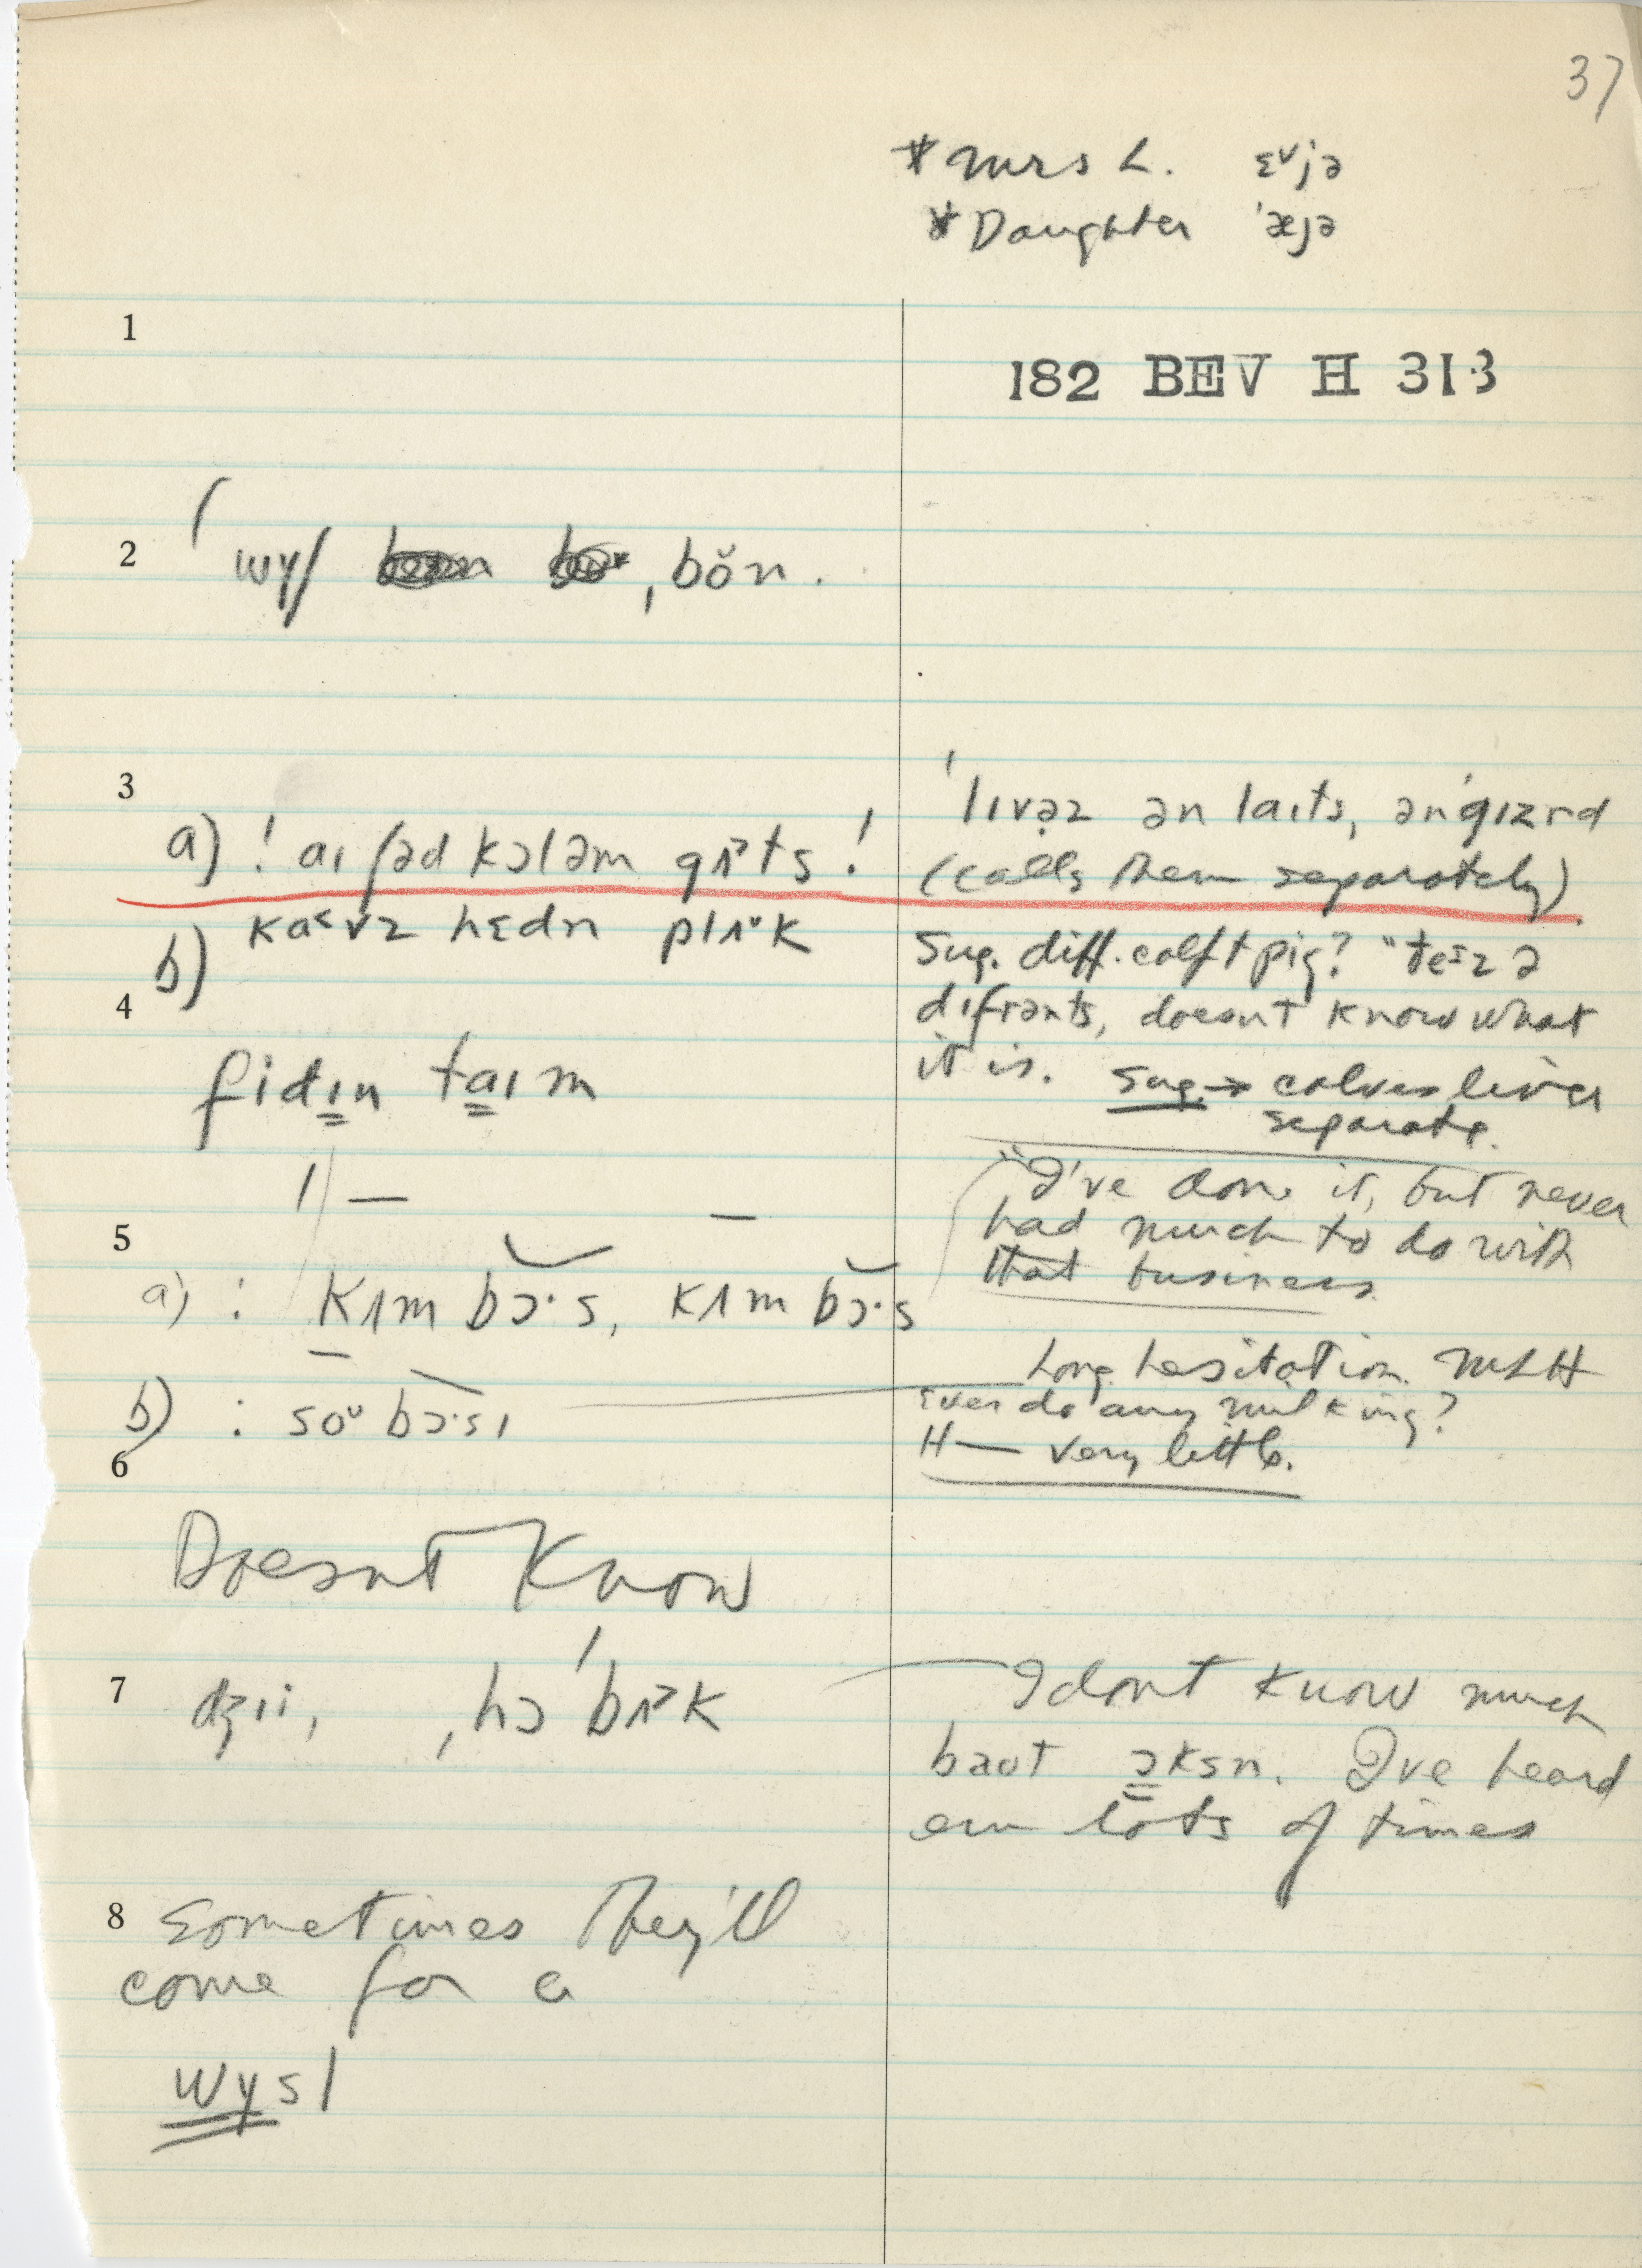 37
* Mrs L. ɛᵛjə
* Daughter 'æjə
1
182 BEV H 313
2
wɪʃ ˌbŏn.
3
'lɪvəz ən laɪts, ən'gɪzrd
a) ! aɪ ʃəd kɔləm gʌ˃ts !
(calls them separately).
b) ka˂vz hɛdn plʌᵛk
Sug. diff. calf + pig? "ðe=z ə
4
dɪfrənts, doesnt know what
it is. Sug. → calves liver
separate.
fidɪn taɪm
"I've done it, but never
had much to do with
that business
5
a) : kʌm bɔ·s, kʌm bɔ·s
Long hesitation. MLH
b) : soᵘ bɔ·sɪ
ever do any milking?
H — very little.
6
Doesnt Know
7
dʒɪi, ˌhɔ'bʌ˃k
I dont know much
baot ɔksn. Ive heard
em lots of times
8
Sometimes they'll
come for a
wɪsl